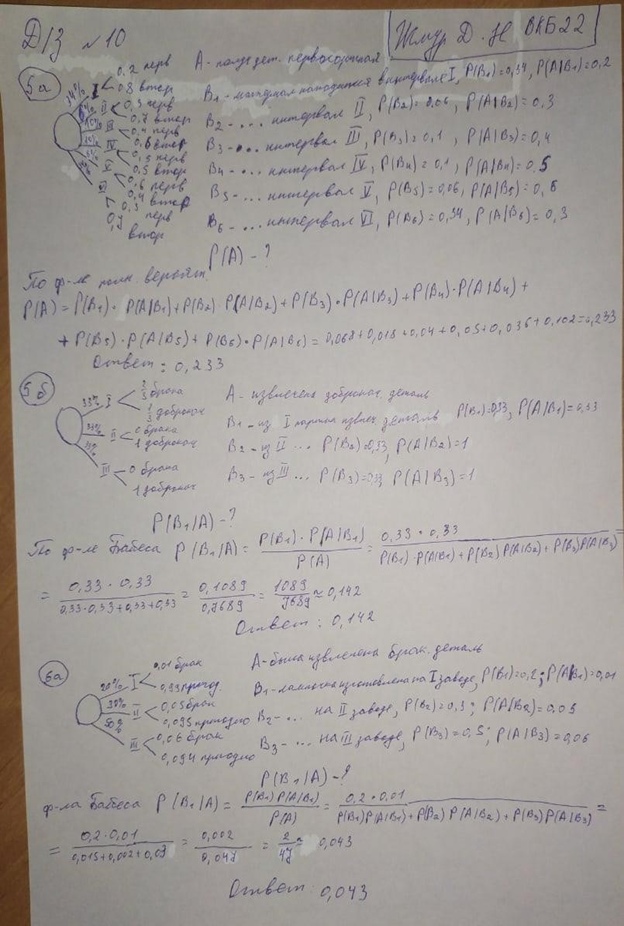 Д/З №10
Жмур Д. Н ВКБ22
5а
34% I 0.2 перв
0.8 втор
II 0,3 перв
0.7 втор
III 0.4 перв
0.6 втор
IV 0,5 перв
0.5 втор
V 0.6 перв
0.4 втор
VI 0.3 перв
0.7 втор
A - дет. первосортная
B₁ - материал находится в интервале I, P(B₁)=0,34, P(A|B₁)=0,2
B₂ - ... интервал II, P(B₂)=0.06, P(A|B₂)=0.3
B₃ - ... интервал III, P(B₃)=0.1, P(A|B₃)=0.4
B₄ - ... интервал IV, P(B₄)=0.1, P(A|B₄)=0.5
B₅ - ... интервал V, P(B₅)=0.06, P(A|B₅)=0.6
B₆ - ... интервал VI, P(B₆)=0,34, P(A|B₆)=0.3
P(A) - ?
По ф-ле полн. вероятн.
P(A) = P(B₁)· P(A|B₁)+P(B₂)· P(A|B₂)+P(B₃)·P(A|B₃)+P(B₄)·P(A|B₄)+
+ P(B₅)·P(A|B₅)+P(B₆)·P(A|B₆)=0,068+0,018+0,04+0,05+0,036+0,102=0,233
Ответ: 0,233
5б
33% I 2/3 брака
1/3 доброкач
33% II 0 брака
1 доброкач
33% III 0 брака
1 доброкач
A - извлечена доброкач. деталь
B₁ - из I партии извлеч деталь P(B₁)=0,33, P(A|B₁)=0,33
B₂ - из II ... P(B₂)=0,33, P(A|B₂)=1
B₃ - из III ... P(B₃)=0,33, P(A|B₃)=1
P(B₁|A) - ?
По ф-ле Байеса P(B₁|A) = P(B₁)·P(A|B₁) / P(A) = 0,33·0,33 / P(B₁)·P(A|B₁)+P(B₂)P(A|B₂)+P(B₃)P(A|B₃) =
= 0,33·0,33 / 0,33·0,33+0,33+0,33 = 0,1089 / 0,7689 = 1089 / 7689 ≈ 0,142
Ответ: 0,142
6а
20% I 0,01 брак
0,99 пригод.
30% II 0,05 брак
0,095 пригодно
50% III 0,06 брак
0,094 пригодно
A - была извлечена брак. деталь
B₁ - лампочка изготовлена на I заводе, P(B₁)=0,2; P(A|B₁)=0,01
B₂ - ... на II заводе, P(B₂)=0,3; P(A|B₂)=0.05
B₃ - ... на III заводе, P(B₃)=0,5; P(A|B₃)=0,06
P(B₁|A) - ?
ф-ла Байеса P(B₁|A) = P(B₁)P(A|B₁) / P(A) = 0,2·0,01 / P(B₁)P(A|B₁)+P(B₂)P(A|B₂)+P(B₃)P(A|B₃) =
= 0,2·0,01 / 0,015+0,002+0,03 = 0,002 / 0,047 = 2 / 47 = 0,043
Ответ: 0,043